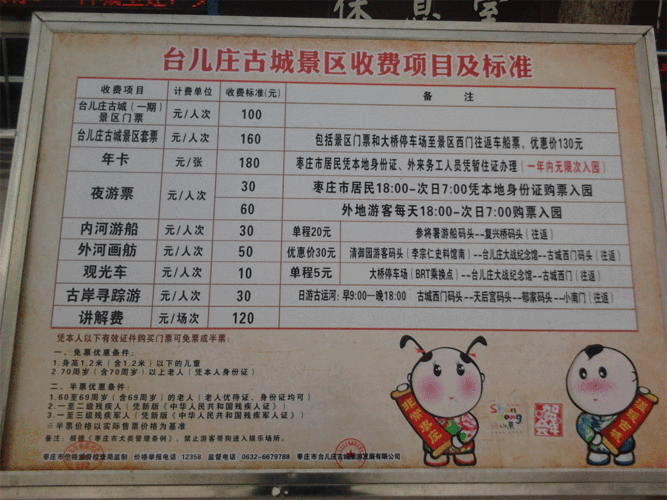 休息室
台儿庄古城景区收费项目及标准
收费项目 计费单位 收费标准(元) 备 注
台儿庄古城（一期）景区门票 元/人次 100
台儿庄古城景区套票 元/人次 160 包括景区门票和大桥停车场至景区西门往返车船票，优惠价130元
年卡 元/张 180 枣庄市居民凭本地身份证、外来务工人员凭暂住证办理（一年内无限次入园）
夜游票 元/人次 30 枣庄市居民18:00-次日7:00凭本地身份证购票入园
60 外地游客每天18:00-次日7:00购票入园
内河游船 元/人次 30 单程20元 参将署游船码头--复兴桥码头（往返）
外河画舫 元/人次 50 优惠价30元 清御园游客码头（李宗仁史料馆南）--台儿庄大战纪念馆--古城西门码头（往返）
观光车 元/人次 10 单程5元 大桥停车场（BRT乘换点）--台儿庄大战纪念馆--古城西门（往返）
古岸寻踪游 元/人次 30 日游古运河：早9:00—晚18:00 古城西门码头--天后宫码头--郁家码头--小南门（往返）
讲解费 元/场次 120
凭本人以下有效证件购买门票可免票或半票：
一、免票优惠条件：
1.身高1.2米（含1.2米）以下的儿童
2.70周岁（含70周岁）以上老人（凭本人身份证）
二、半票优惠条件：
1.60至69周岁（含69周岁）的老人（老人优待证、身份证均可）
2.一至二级残疾人（凭新版《中华人民共和国残疾人证》）
3.一至三级残疾军人（凭新版《中华人民共和国残疾军人证》）
※半票价格以实际售票价格为基准
备注：根据（枣庄市犬类管理条例），禁止游客带狗进入娱乐场所。
枣庄市价格监督检查局监制 价格举报电话：12358 监督电话：0632-6679788 枣庄市台儿庄古城旅游发展有限公司
贺年会